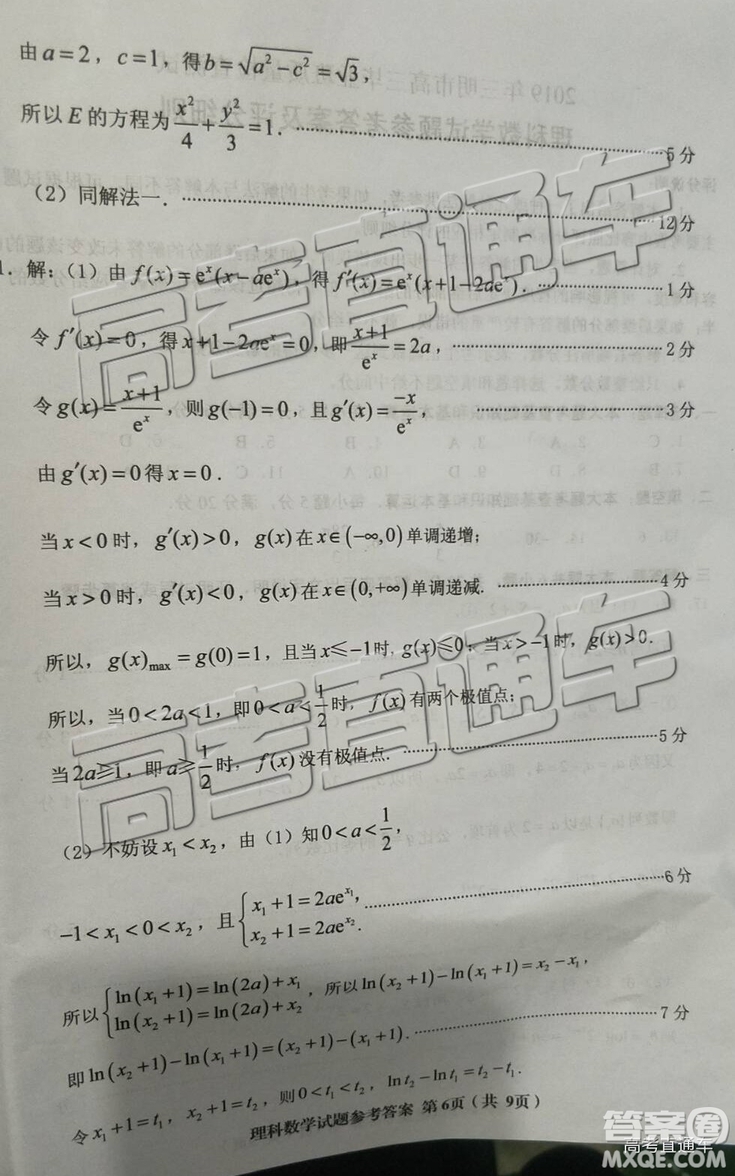 由 a=2，c=1，得 b=√(a²−c²)=√3，
所以 E 的方程为 x²/4+y²/3=1．……5分
（2）同解法一．……12分
1．解：（1）由 f(x)=eˣ(x−aeˣ)，得 f′(x)=eˣ(x+1−2aeˣ)．……1分
令 f′(x)=0，得 x+1−2aeˣ=0，即 (x+1)/eˣ=2a，……2分
令 g(x)=(x+1)/eˣ，则 g(−1)=0，且 g′(x)=−x/eˣ，……3分
由 g′(x)=0 得 x=0．
当 x<0 时，g′(x)>0，g(x) 在 x∈(−∞,0) 单调递增；
当 x>0 时，g′(x)<0，g(x) 在 x∈(0,+∞) 单调递减．……4分
所以，g(x)max=g(0)=1，且当 x≤−1 时，g(x)≤0；当 x>−1 时，g(x)>0．
所以，当 0<2a<1，即 0<a<1/2 时，f(x) 有两个极值点；
当 2a≥1，即 a≥1/2 时，f(x) 没有极值点．……5分
（2）不妨设 x₁<x₂，由（1）知 0<a<1/2，
−1<x₁<0<x₂，且 { x₁+1=2ae^{x₁}，x₂+1=2ae^{x₂}．……6分
所以 { ln(x₁+1)=ln(2a)+x₁ ln(x₂+1)=ln(2a)+x₂，所以 ln(x₂+1)−ln(x₁+1)=x₂−x₁，
即 ln(x₂+1)−ln(x₁+1)=(x₂+1)−(x₁+1)．……7分
令 x₁+1=t₁，x₂+1=t₂，则 0<t₁<t₂，lnt₂−lnt₁=t₂−t₁．
理科数学试题参考答案 第6页（共 9页）
高考直通车
高考直通车
答案圈
高考直通车
MXQE.COM